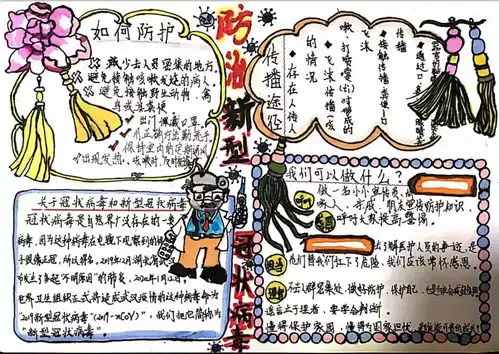 防治新型冠状病毒
如何防护
减少去人员密集的地方。
避免接触咳嗽发烧的病人。
避免接触野生动物、禽
鸟或其粪便
出门佩戴口罩。
用正确方法勤洗手
保持室内的定期通风
出现发热、咳嗽时,及时就医
传播途径
存在人传人
的情况
飞沫传播(咳
嗽、打喷嚏)时形成的
飞沫
接触传播
传播
关于冠状病毒和新型冠状病毒
冠状病毒是自然界广泛存在的一类
病毒,因为这种病毒在电镜下观察到的形状类
于国王的皇冠,所以得名。2019年12月湖北省武汉
市发生了多起“不明原因”的肺炎,2020年1月12日,
世界卫生组织正式将造成武汉疫情的这种病毒命为
“2019新型冠状病毒(2019-nCoV)”,我们把它简称为
“新型冠状病毒”。
我们可以做什么?
做一名小小宣传员,向
病人、亲戚、朋友宣传防护知识,
呼吁
呼吁大家提高警惕。
了解医护人员的事迹,是
担当
他们替我们扛下了危险,我们应该常怀感恩。
理解
不去人群密集处,做好防护,保护自己
懂得保护家园,懂得为国家担忧,